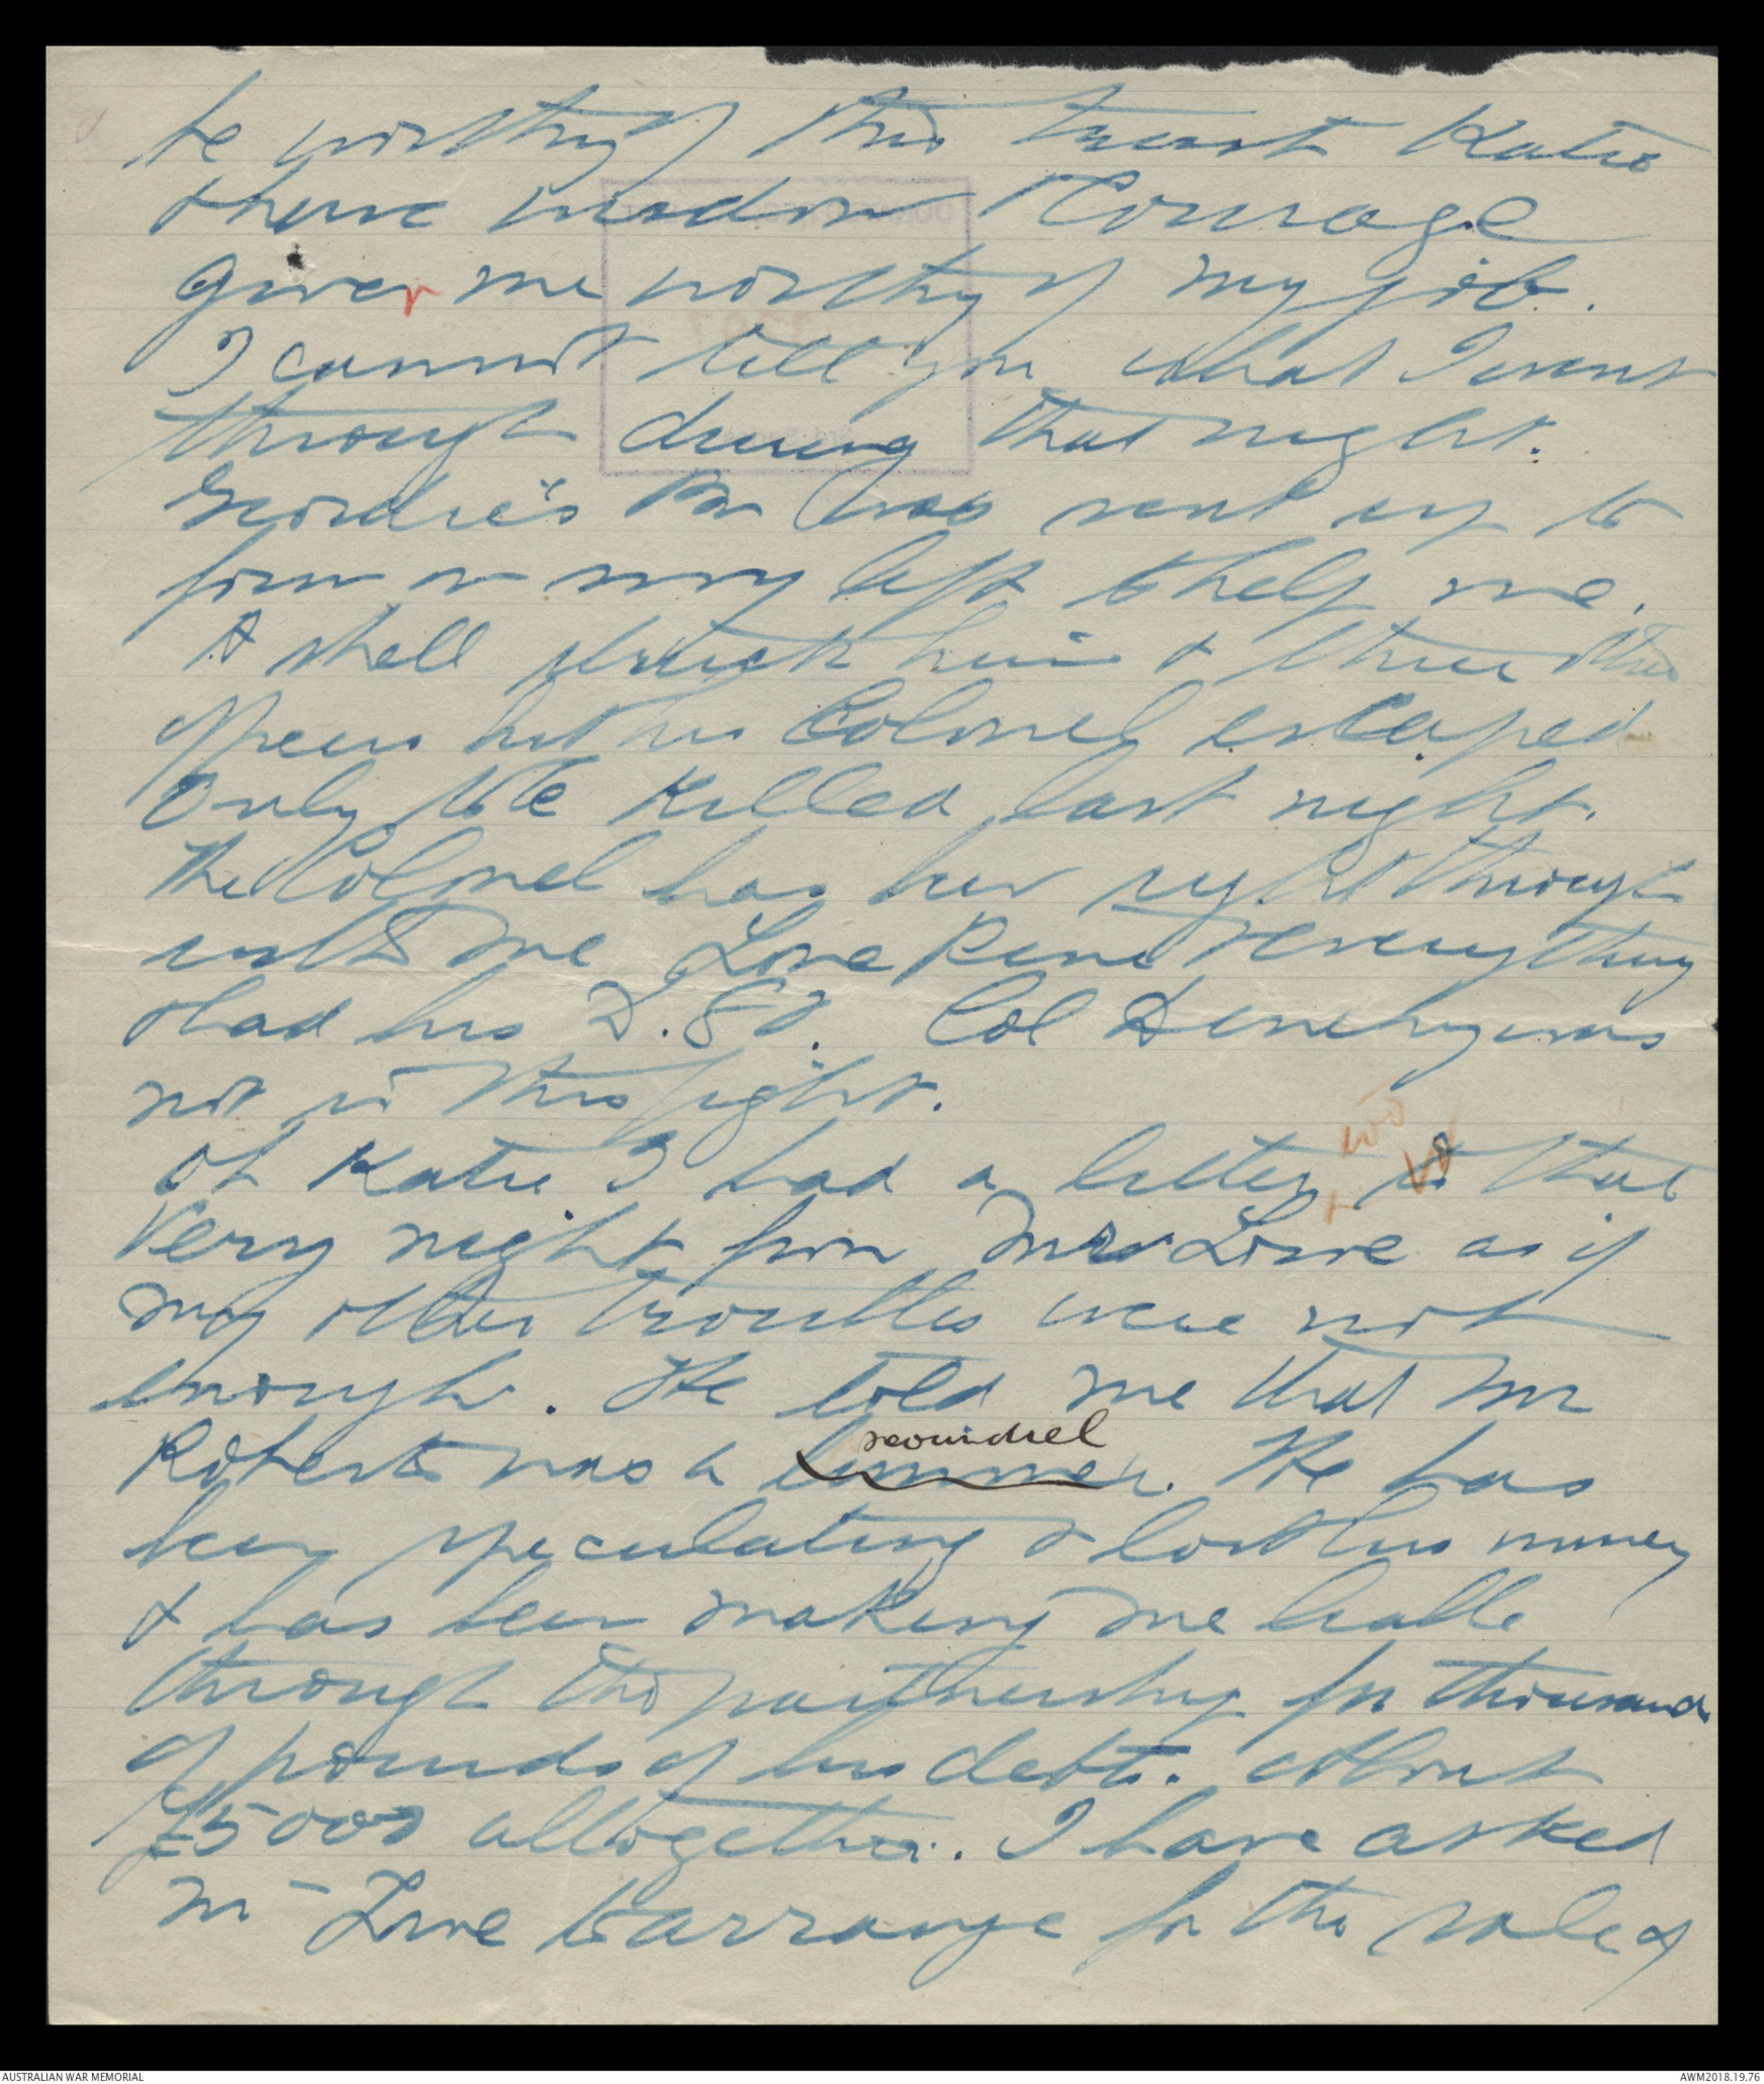 be worthy of this trust Katie
& have wisdom & Courage
given me worthy of my job.
I cannot tell you what I went
through during that night.
Geordie's Bn was sent up to
form on my left to help me.
A shell struck him & three other
officers but his Colonel escaped
Only to be killed last night.
The Colonel has been right through
with me Lone Pine & everything
& had his D.S.O. Col Denehy was
not in this fight.
Oh Katie I had a letter that
very night from Mr Love as if
my other troubles were not
enough. He told me that Mr
scoundrel
Roberts was a . He has
been speculating & lost his money
& has been making me liable
through the partnership for thousands
of pounds of his debts. About
£5000 altogether. I have asked
Mr Love to arrange for the sale of
AUSTRALIAN WAR MEMORIAL
AWM2018.19.76